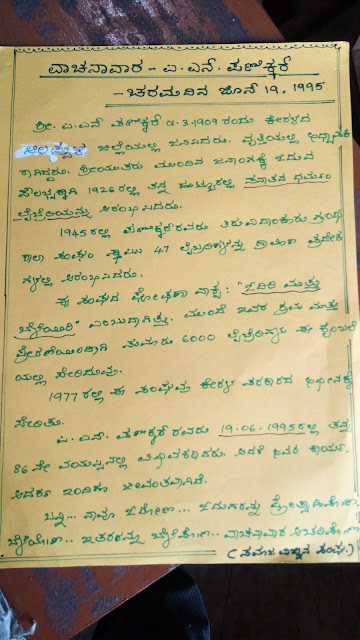 ವಾಚನಾವಾರ - ಪಿ.ಎನ್. ಪಣಿಕ್ಕರ್
- ಚರಮದಿನ ಜೂನ್ 19, 1995
ಶ್ರೀ. ಪಿ.ಎನ್ ಪಣಿಕ್ಕರ್ 1-3-1909 ರಂದು ಕೇರಳದ
ಜಿಲ್ಲೆಯಲ್ಲಿ ಜನಿಸಿದರು. ವೃತ್ತಿಯಲ್ಲಿ ಅಧ್ಯಾಪಕ
ರಾಗಿದ್ದರು. ಶ್ರೀಯುತರು ಮುಂದಿನ ಜನಾಂಗಕ್ಕೆ ಓದುವ
ಸೌಲಭ್ಯಕ್ಕಾಗಿ 1926 ರಲ್ಲಿ ತನ್ನ ಹುಟ್ಟೂರಲ್ಲಿ ಸನಾತನ ಧರ್ಮಂ
ಲೈಬ್ರೆರಿಯನ್ನು ಆರಂಭಿಸಿದರು.
1945 ರಲ್ಲಿ ಪಣಿಕ್ಕರ್ ರವರು ತಿರುವಿದಾಂಕೂರು ಗ್ರಂಥ
ಶಾಲಾ ಸಂಘಂ 47 ಲೈಬ್ರರಿಗಳನ್ನು ಗ್ರಾಮೀಣ ಪ್ರದೇಶ
ಗಳಲ್ಲಿ ಆರಂಭಿಸಿದರು.
ಈ ಸಂಘದ ಘೋಷಣಾ ವಾಕ್ಯ: "ಓದಿರಿ ಮತ್ತು
ಬೆಳೆಯಿರಿ" ಎಂಬುದಾಗಿತ್ತು. ಮುಂದೆ ಇವರ ಶ್ರಮ ಮತ್ತು
ಪ್ರೇರಣೆಯಿಂದಾಗಿ ಸುಮಾರು 6000 ಲೈಬ್ರೆರಿಗಳು ಈ
ಯಲ್ಲಿ ಸೇರಿದುವು.
1977 ರಲ್ಲಿ ಈ ಸಂಘವು ಕೇರಳ ಸರಕಾರದ ಅಧೀನಕ್ಕೆ
ಸೇರಿತು.
ಪಿ. ಎನ್. ಪಣಿಕ್ಕರ್ ರವರು 19.06.1995 ರಲ್ಲಿ ತನ್ನ
86 ನೇ ವಯಸ್ಸಿನಲ್ಲಿ ವಿಧಿವಶರಾದರು. ಆದರೆ ಅವರ ಕಾರ್ಯ,
ಆದರ್ಶ ಇಂದಿಗೂ ಜೀವಂತವಾಗಿದೆ.
ಬನ್ನಿ... ನಾವೂ ಓದೋಣ... ಓದುಗರನ್ನು ಪ್ರೋತ್ಸಾಹಿಸೋಣ.
ಬೆಳೆಯೋಣ.. ಇತರರನ್ನು ಬೆಳೆಸೋಣ.. ವಾಚನಾವಾರ ಆಚರಿಸೋಣ.
(ಸಮಾಜ ವಿಜ್ಞಾನ ಸಂಘ)